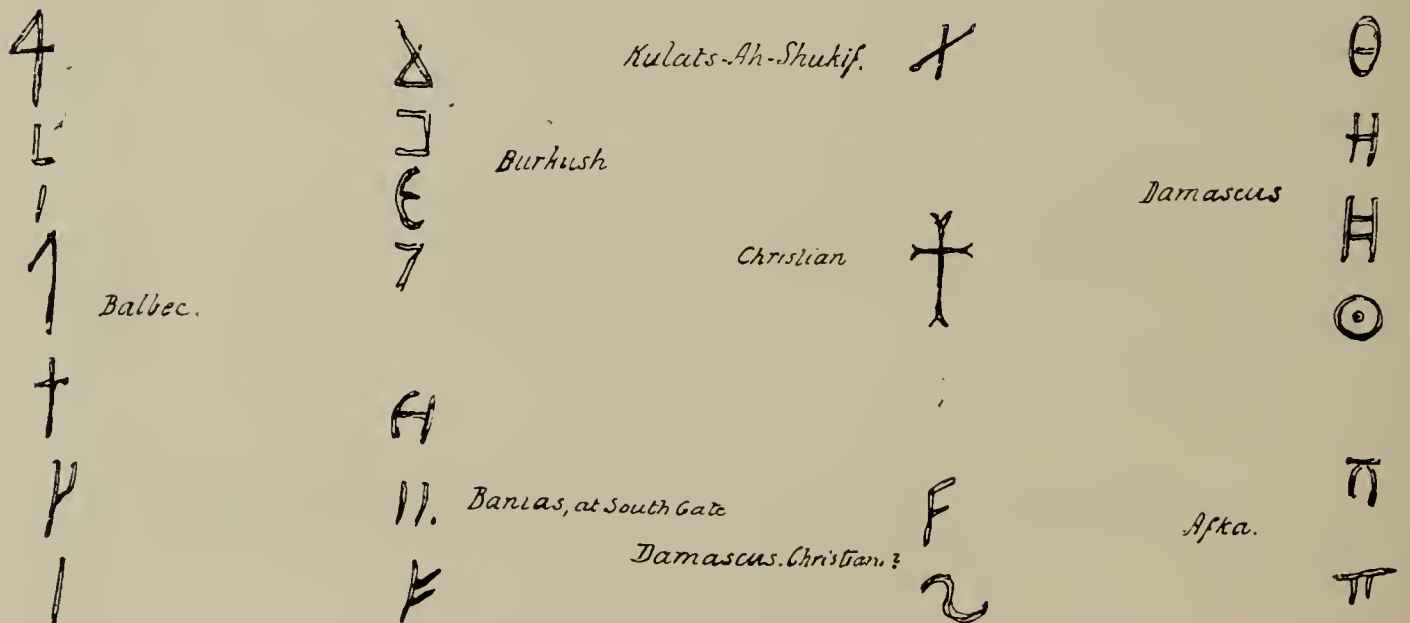 Kulats-Ah-Shukif.
Burkush
Damascus
Christian
Balbec.
Banias, at South Gate
Afka.
Damascus. Christian.?